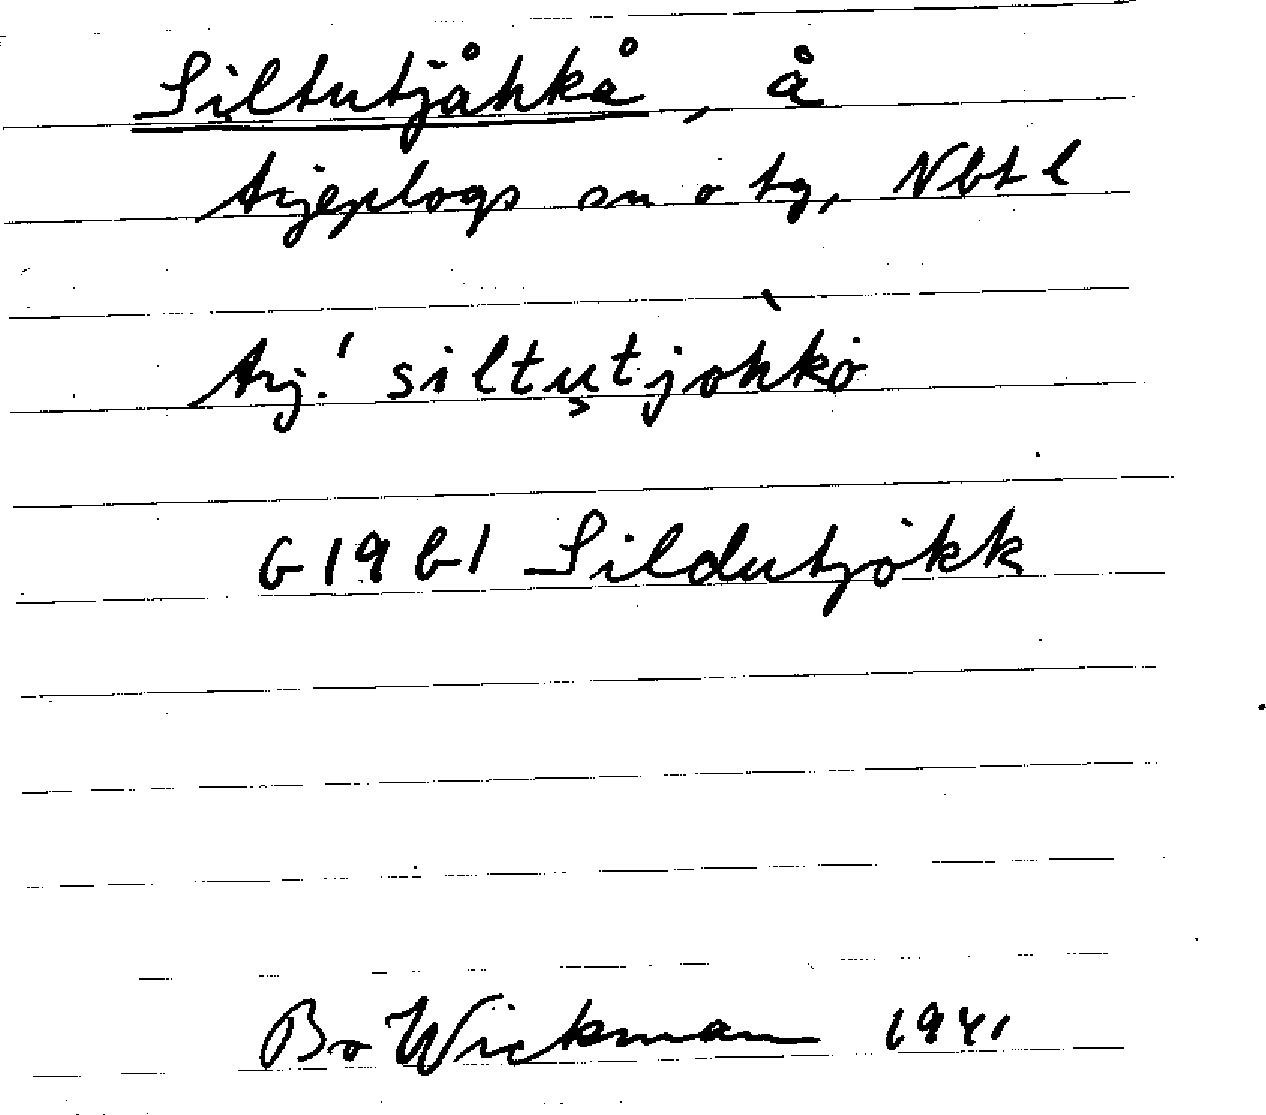 Siltutjåhkå, å
Arjeplogs sn o tg, Nbt l
Arj. ˈsiltu̬tjòhko
G 19 b1 Sildutjokk
Bo Wickman 1941